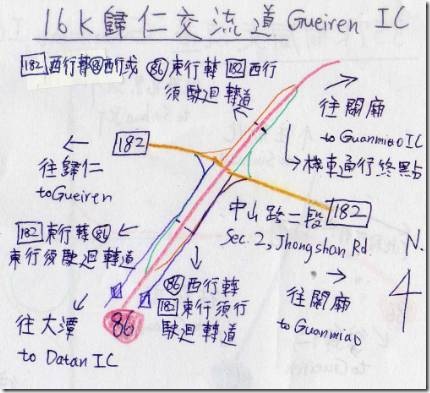 16K歸仁交流道 Gueiren IC
182西行轉86西行或
86東行轉182西行
須駛迴轉道
往關廟
to Guanmiao IC
機車通行終點
182
往歸仁
to Gueiren
中山路二段
Sec. 2, Jhongshan Rd
182
N.
182東行轉86
東行須駛迴轉道
86西行轉
182東行須行
駛迴轉道
往關廟
to Guanmiao
往大潭
to Datan IC
86